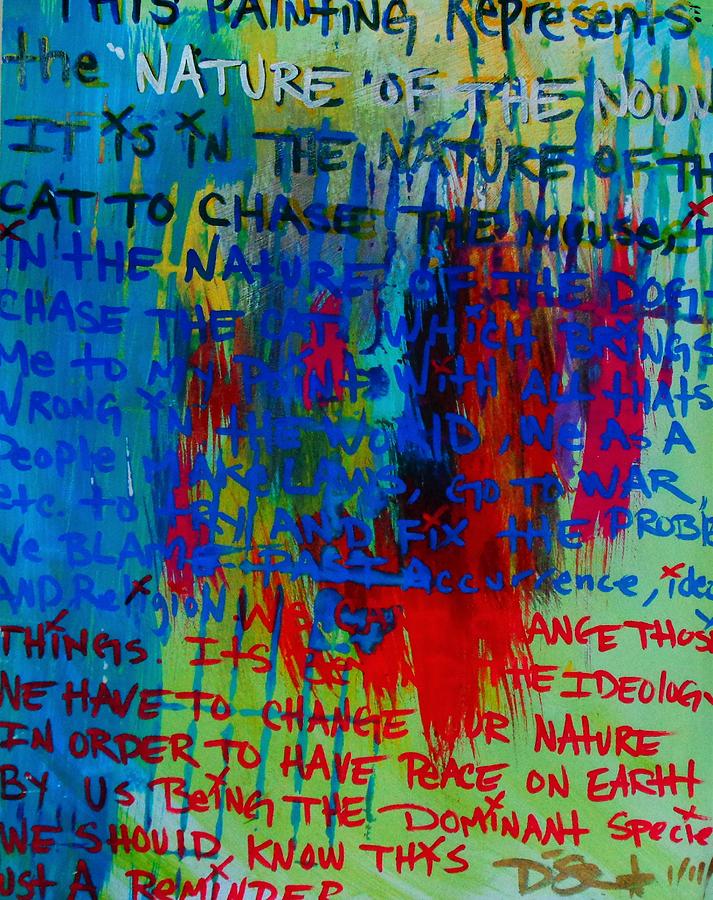 THIS PAINTING Represents
the "NATURE OF THE NOUN
IT iS iN THE NATURE OF TH
CAT TO CHASE THE MOUSE,
iN tHE NAtURE OF tHE DOG
CHASE THE CAT. WHiCH BRiNGS
Me to MY POiNt, WitH ALL tHAtS
WRONG iN tHE WORLD, We AS A
People MAKe LAWS, GO TO WAR,
etc. to tRY AND FiX tHe PROBLE
We BLAMe PAST Accurrence, idea
AND ReligioN. We CAN
ANGE THOSE
THiNGS. Its THE IDEOLOGY
WE HAVE TO CHANGE OUR NAtURE
IN ORDER TO HAVE PEACE ON EARtH
BY US BeiNG THE DOMiNANt Specie
WE SHOULD KNOW THiS
JUST A ReMiNDER
1/11/